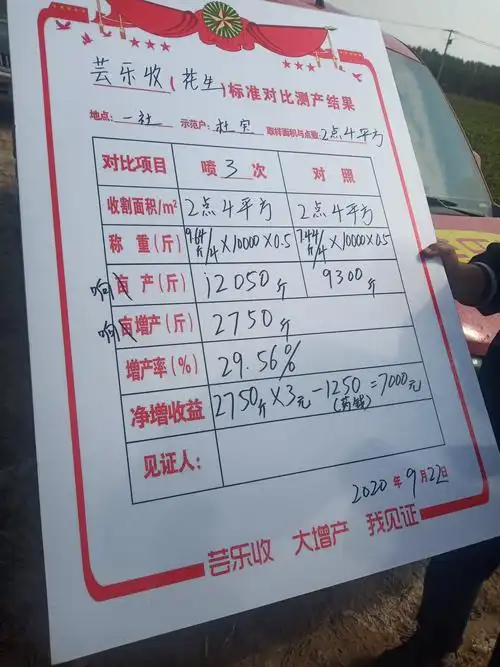 芸乐收(花生)标准对比测产结果
地点:一社 示范户:杜宾 取样面积与点数:2点4平方
对比项目 喷3次 对照
收割面积/m² 2点4平方 2点4平方
称重(斤) 9.64斤/4×10000×0.5 7.44斤/4×10000×0.5
响亩产(斤) 12050斤 9300斤
响亩增产(斤) 2750斤
增产率(%) 29.56%
净增收益 2750斤×3元-1250(药钱)=7000元
见证人:
2020年9月22日
芸乐收 大增产 我见证